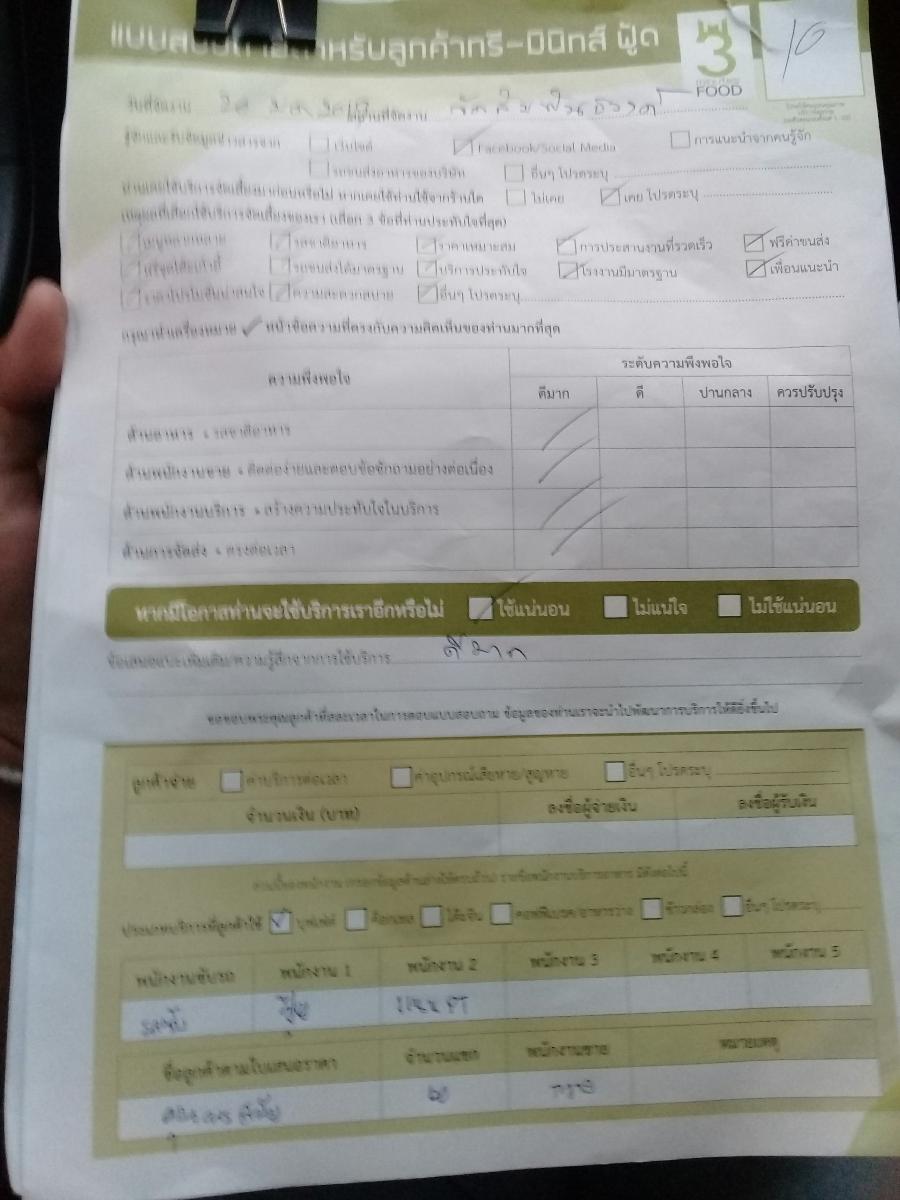 แบบสอบถามสำหรับลูกค้าทรี-มินิทส์ ฟู้ด
3
FOOD
10
วันที่จัดงาน สถานที่จัดงาน
รู้จักและรับข้อมูลข่าวสารจาก เว็บไซต์ Facebook/Social Media การแนะนำจากคนรู้จัก
รถขนส่งอาหารของบริษัท อื่นๆ โปรดระบุ
ท่านเคยใช้บริการจัดเลี้ยงมาก่อนหรือไม่ หากเคยใช้ท่านใช้จากร้านใด ไม่เคย เคย โปรดระบุ
เหตุผลที่เลือกใช้บริการจัดเลี้ยงของเรา (เลือก 3 ข้อที่ท่านประทับใจที่สุด)
เมนูหลากหลาย รสชาติอาหาร ราคาเหมาะสม การประสานงานที่รวดเร็ว ฟรีค่าขนส่ง
ฟรีชุดโต๊ะเก้าอี้ รถขนส่งได้มาตรฐาน บริการประทับใจ โรงงานมีมาตรฐาน เพื่อนแนะนำ
ราคาโปรโมชั่นน่าสนใจ ความสะดวกสบาย อื่นๆ โปรดระบุ
กรุณาทำเครื่องหมาย ✓ หน้าข้อความที่ตรงกับความคิดเห็นของท่านมากที่สุด
ความพึงพอใจ ระดับความพึงพอใจ
ดีมาก ดี ปานกลาง ควรปรับปรุง
ด้านอาหาร : รสชาติอาหาร
ด้านพนักงานขาย : ติดต่อง่ายและตอบข้อซักถามอย่างต่อเนื่อง
ด้านพนักงานบริการ : สร้างความประทับใจในบริการ
ด้านการจัดส่ง : ตรงต่อเวลา
หากมีโอกาสท่านจะใช้บริการเราอีกหรือไม่ ใช้แน่นอน ไม่แน่ใจ ไม่ใช้แน่นอน
ข้อเสนอแนะเพิ่มเติม/ความรู้สึกจากการใช้บริการ ดีมาก
ขอขอบพระคุณลูกค้าที่สละเวลาในการตอบแบบสอบถาม ข้อมูลของท่านเราจะนำไปพัฒนาการบริการให้ดียิ่งขึ้นไป
ลูกค้าจ่าย ค่าบริการต่อเวลา ค่าอุปกรณ์เสียหาย/สูญหาย อื่นๆ โปรดระบุ
จำนวนเงิน (บาท) ลงชื่อผู้จ่ายเงิน ลงชื่อผู้รับเงิน
ประเภทบริการที่ลูกค้าใช้ บุฟเฟ่ต์ ค็อกเทล โต๊ะจีน คอฟฟี่เบรค/อาหารว่าง ข้าวกล่อง อื่นๆ โปรดระบุ
พนักงานขับรถ พนักงาน 1 พนักงาน 2 พนักงาน 3 พนักงาน 4 พนักงาน 5
ชื่อลูกค้าตามใบเสนอราคา จำนวนแขก พนักงานขาย หมายเหตุ